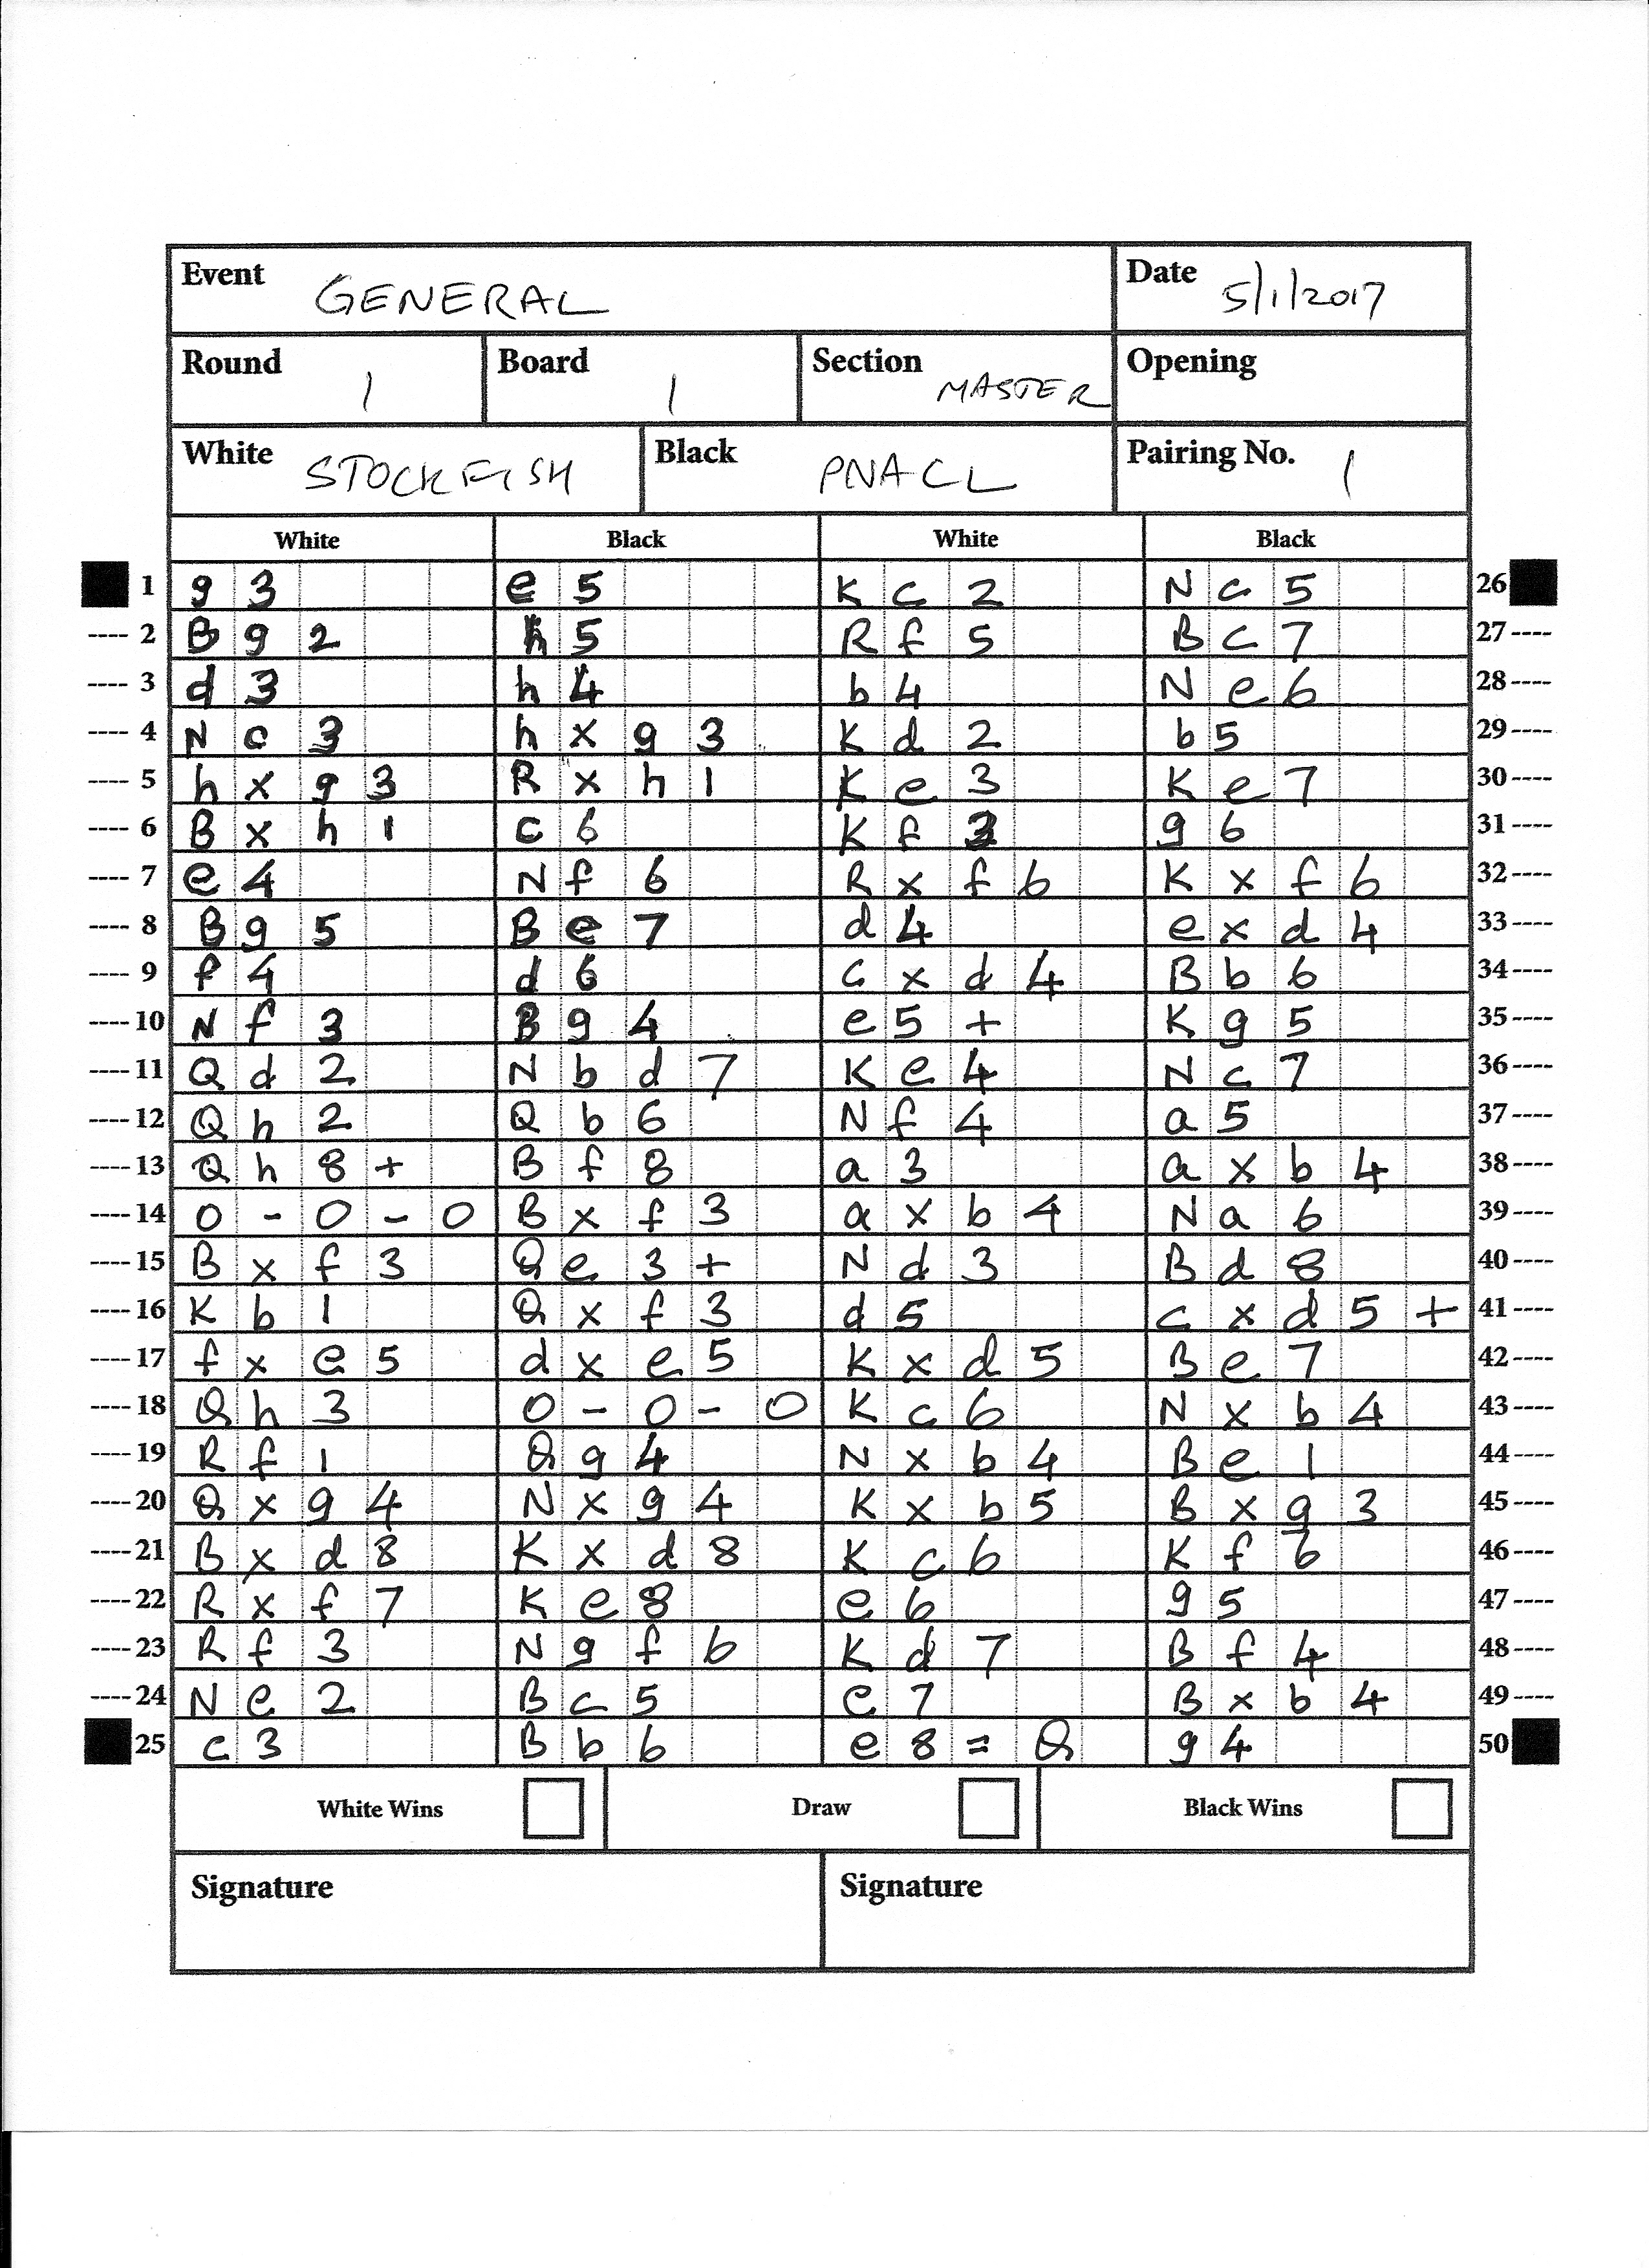 Event GENERAL Date 5/1/2017
Round 1 Board 1 Section MASTER Opening
White STOCKFISH Black PNACL Pairing No. 1
White Black White Black
1 g3 e5 Kc2 Nc5 26
---- 2 Bg2 h5 Rf5 Bc7 27 ----
---- 3 d3 h4 b4 Ne6 28 ----
---- 4 Nc3 hxg3 Kd2 b5 29 ----
---- 5 hxg3 Rxh1 Ke3 Ke7 30 ----
---- 6 Bxh1 c6 Kf3 g6 31 ----
---- 7 e4 Nf6 Rxf6 Kxf6 32 ----
---- 8 Bg5 Be7 d4 exd4 33 ----
---- 9 f4 d6 cxd4 Bb6 34 ----
---- 10 Nf3 Bg4 e5+ Kg5 35 ----
---- 11 Qd2 Nbd7 Ke4 Nc7 36 ----
---- 12 Qh2 Qb6 Nf4 a5 37 ----
---- 13 Qh8+ Bf8 a3 axb4 38 ----
---- 14 0-0-0 Bxf3 axb4 Na6 39 ----
---- 15 Bxf3 Qe3+ Nd3 Bd8 40 ----
---- 16 Kb1 Qxf3 d5 cxd5+ 41 ----
---- 17 fxe5 dxe5 Kxd5 Be7 42 ----
---- 18 Qh3 0-0-0 Kc6 Nxb4 43 ----
---- 19 Rf1 Qg4 Nxb4 Be1 44 ----
---- 20 Qxg4 Nxg4 Kxb5 Bxg3 45 ----
---- 21 Bxd8 Kxd8 Kc6 Kf6 46 ----
---- 22 Rxf7 Ke8 e6 g5 47 ----
---- 23 Rf3 Ngf6 Kd7 Bf4 48 ----
---- 24 Ne2 Bc5 e7 Bxb4 49 ----
25 c3 Bb6 e8=Q g4 50
White Wins Draw Black Wins
Signature Signature